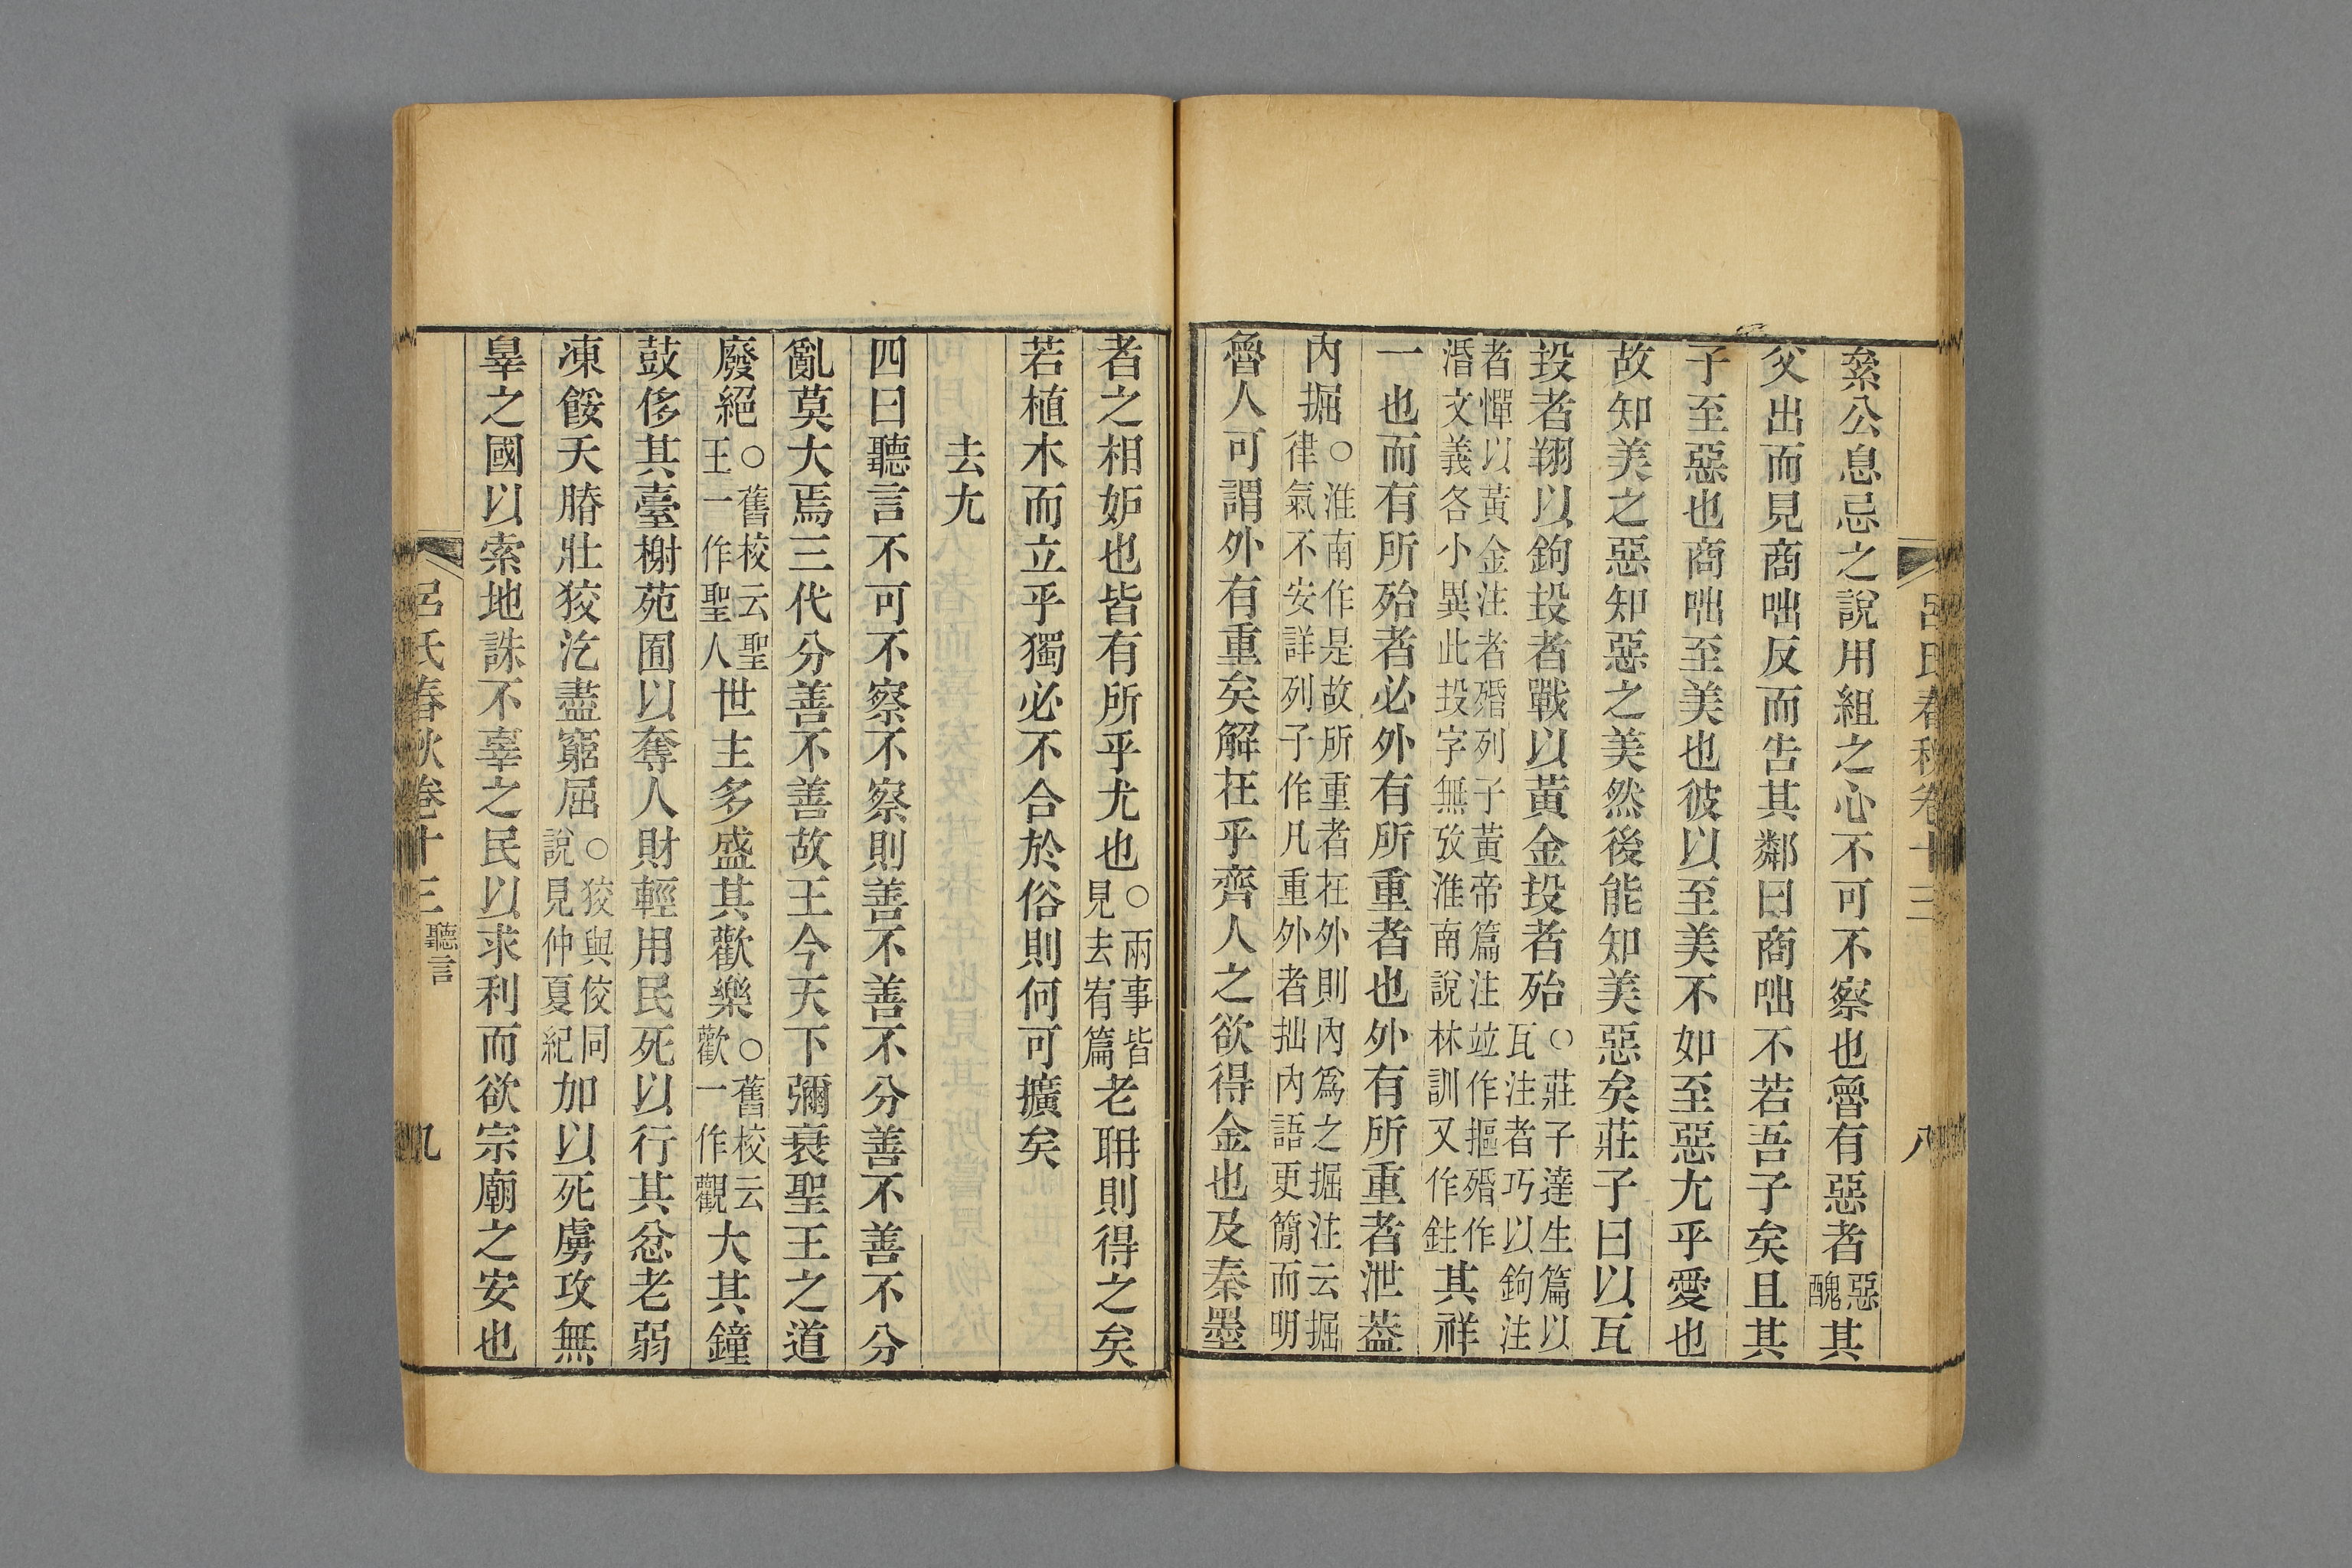 呂氏春秋卷十三 八
絫公息忌之說用組之心不可不察也魯有惡者惡醜其
父出而見商咄反而告其鄰曰商咄不若吾子矣且其
子至惡也商咄至美也彼以至美不如至惡尤乎愛也
故知美之惡知惡之美然後能知美惡矣莊子曰以瓦
投者翔以鉤投者戰以黃金投者殆○莊子達生篇以瓦注者巧以鉤注
者憚以黃金注者殙列子黃帝篇注竝作摳殙作湣文義各小異此投字無攷淮南說林訓又作鉒其祥
一也而有所殆者必外有所重者也外有所重者泄葢
內掘○淮南作是故所重者在外則內爲之掘注云掘律氣不安詳列子作凡重外者拙內語更簡而明
魯人可謂外有重矣解在乎齊人之欲得金也及秦墨
者之相妒也皆有所乎尤也○兩事皆見去宥篇老耼則得之矣
若植木而立乎獨必不合於俗則何可擴矣
去尤
四曰聽言不可不察不察則善不善不分善不善不分
亂莫大焉三代分善不善故王今天下彌衰聖王之道
廢絕○舊校云聖王一作聖人世主多盛其歡樂○舊校云歡一作觀大其鐘
鼓侈其臺榭苑囿以奪人財輕用民死以行其忿老弱
凍餒夭膌壯狡汔盡窮屈○狡與佼同說見仲夏紀加以死虜攻無
辠之國以索地誅不辜之民以求利而欲宗廟之安也
呂氏春秋卷十三 聽言 九